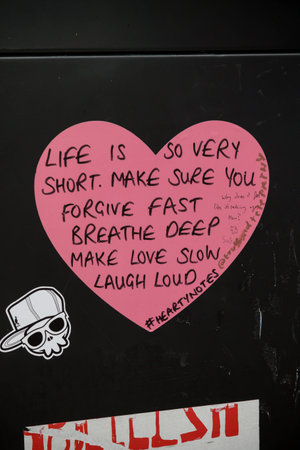 LIFE IS SO VERY
SHORT. MAKE SURE YOU
FORGIVE FAST
BREATHE DEEP
MAKE LOVE SLOW
LAUGH LOUD
#HEARTYNOTES